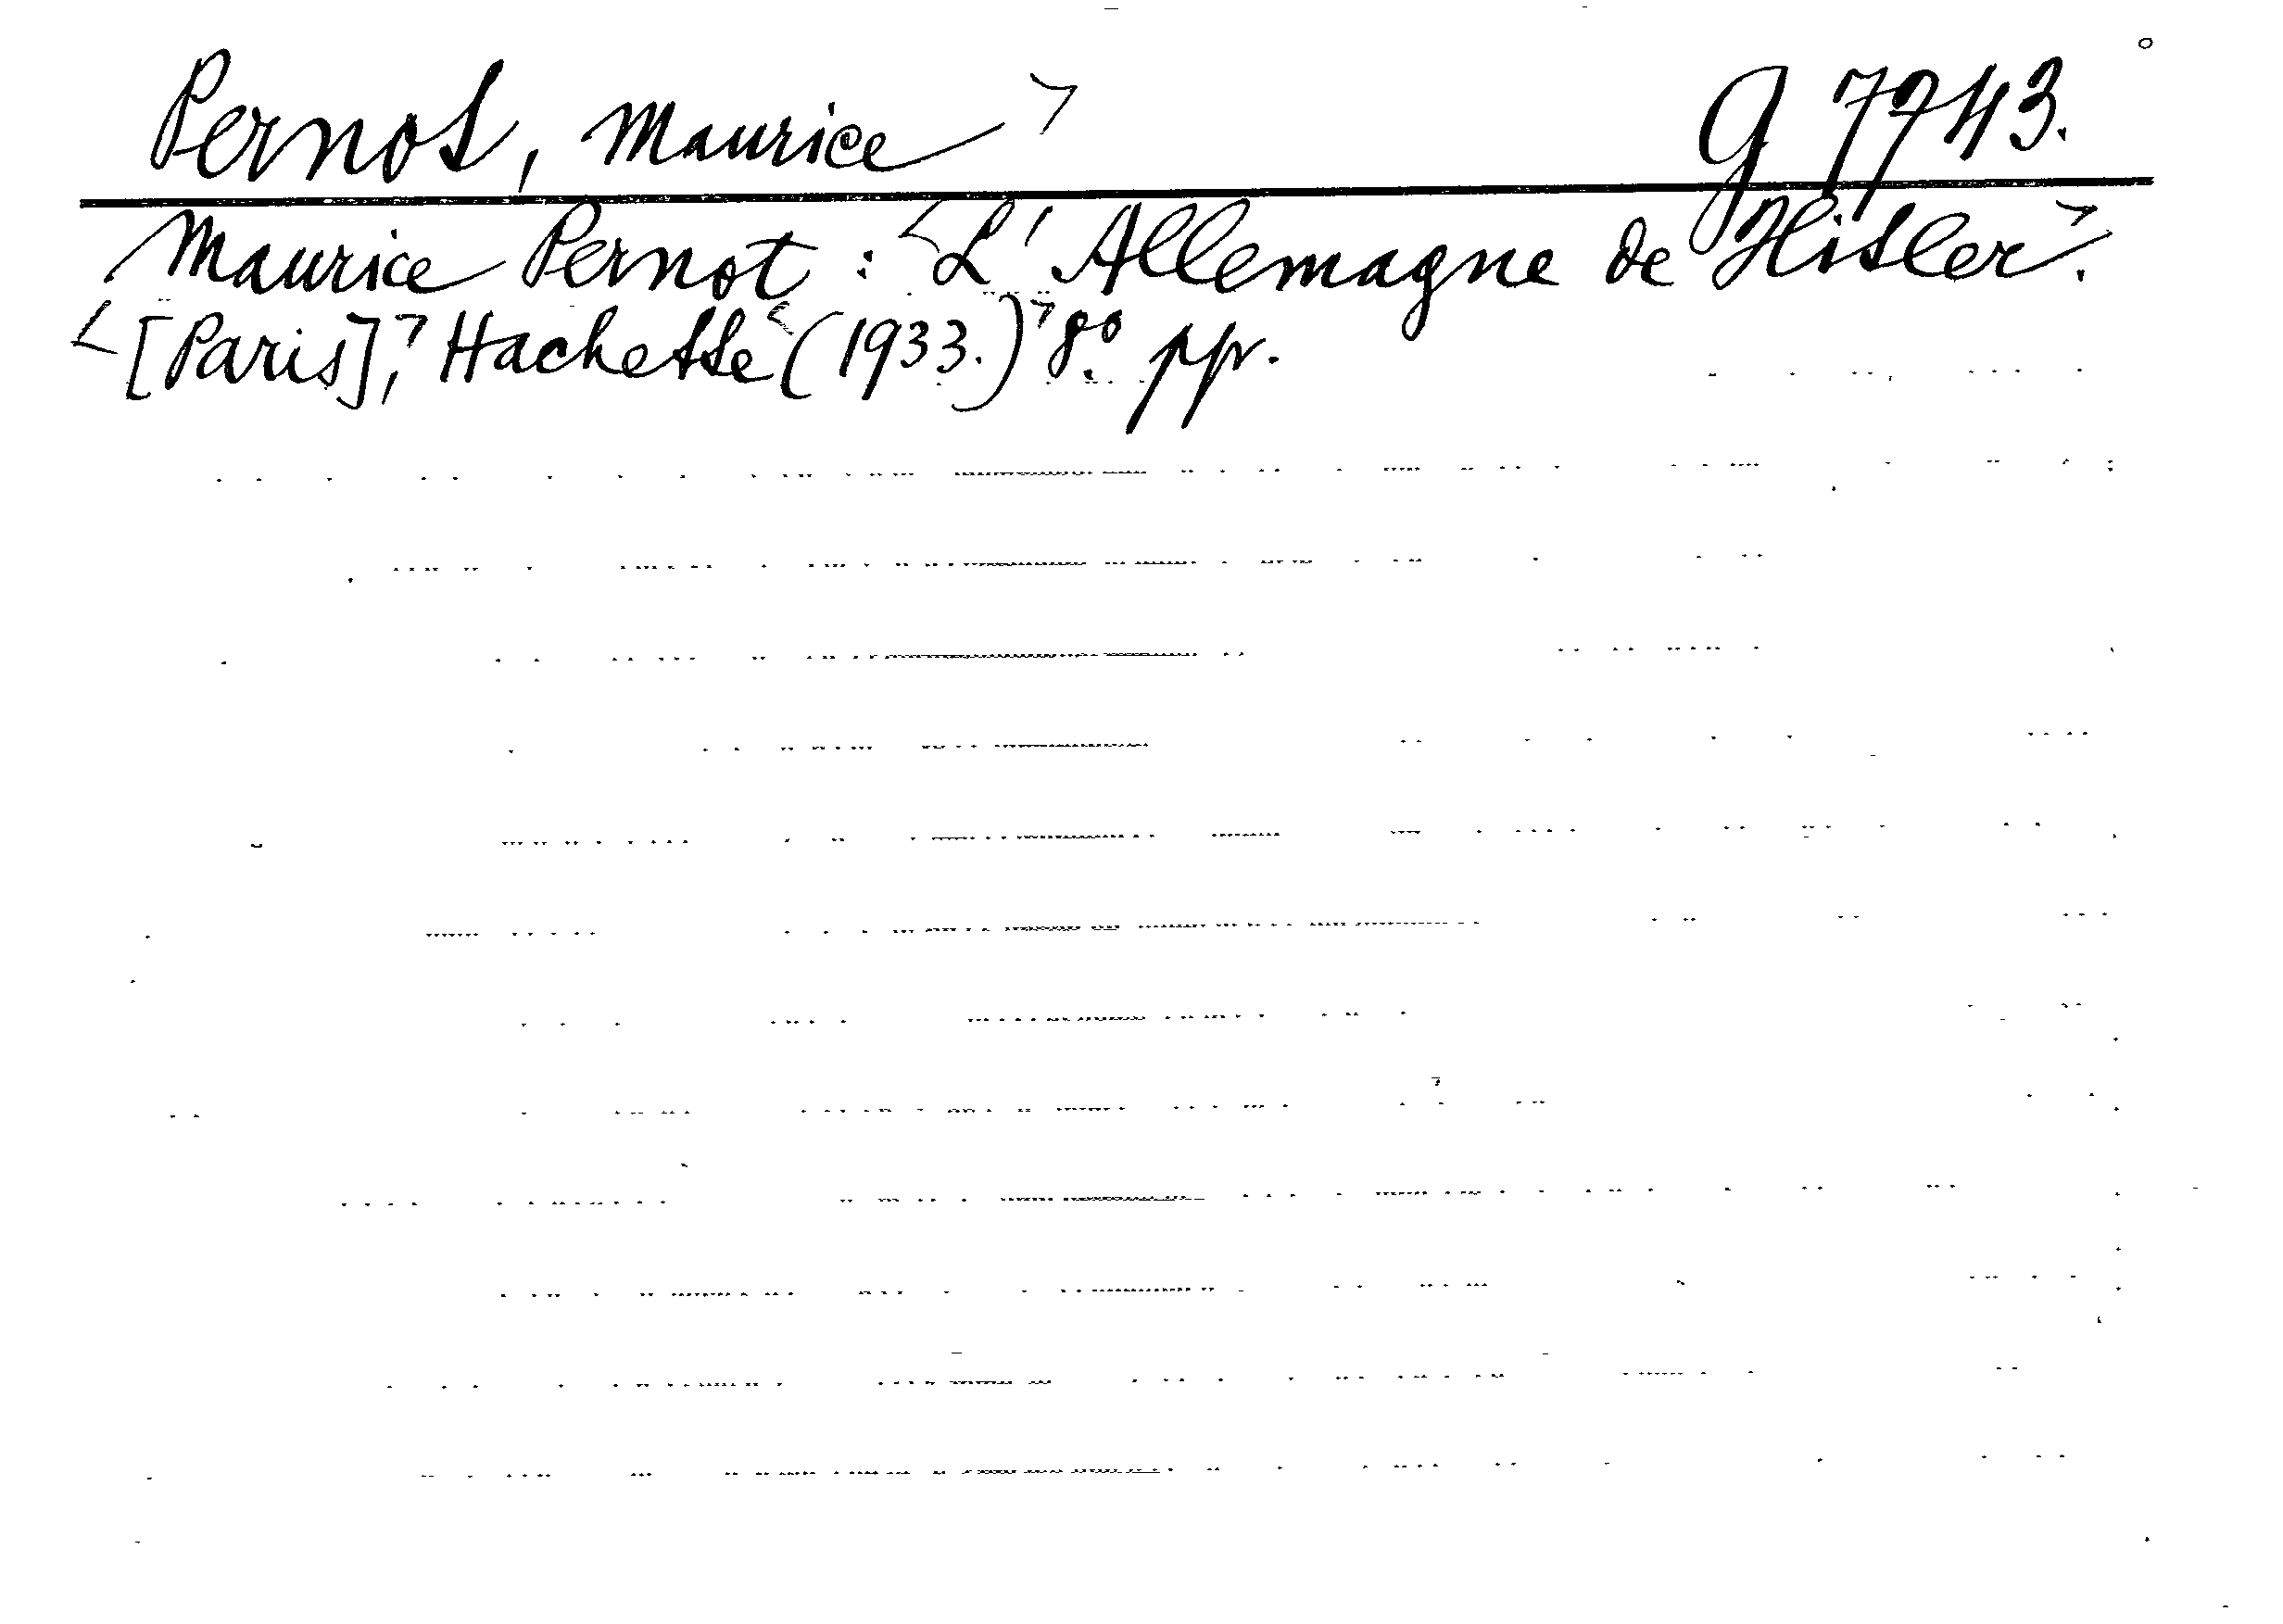 Pernot, Maurice> g 7743.
Maurice Pernot : <L'Allemagne de Hitler>.
<[Paris],> Hachette <(1933.)> 8.° ppr.